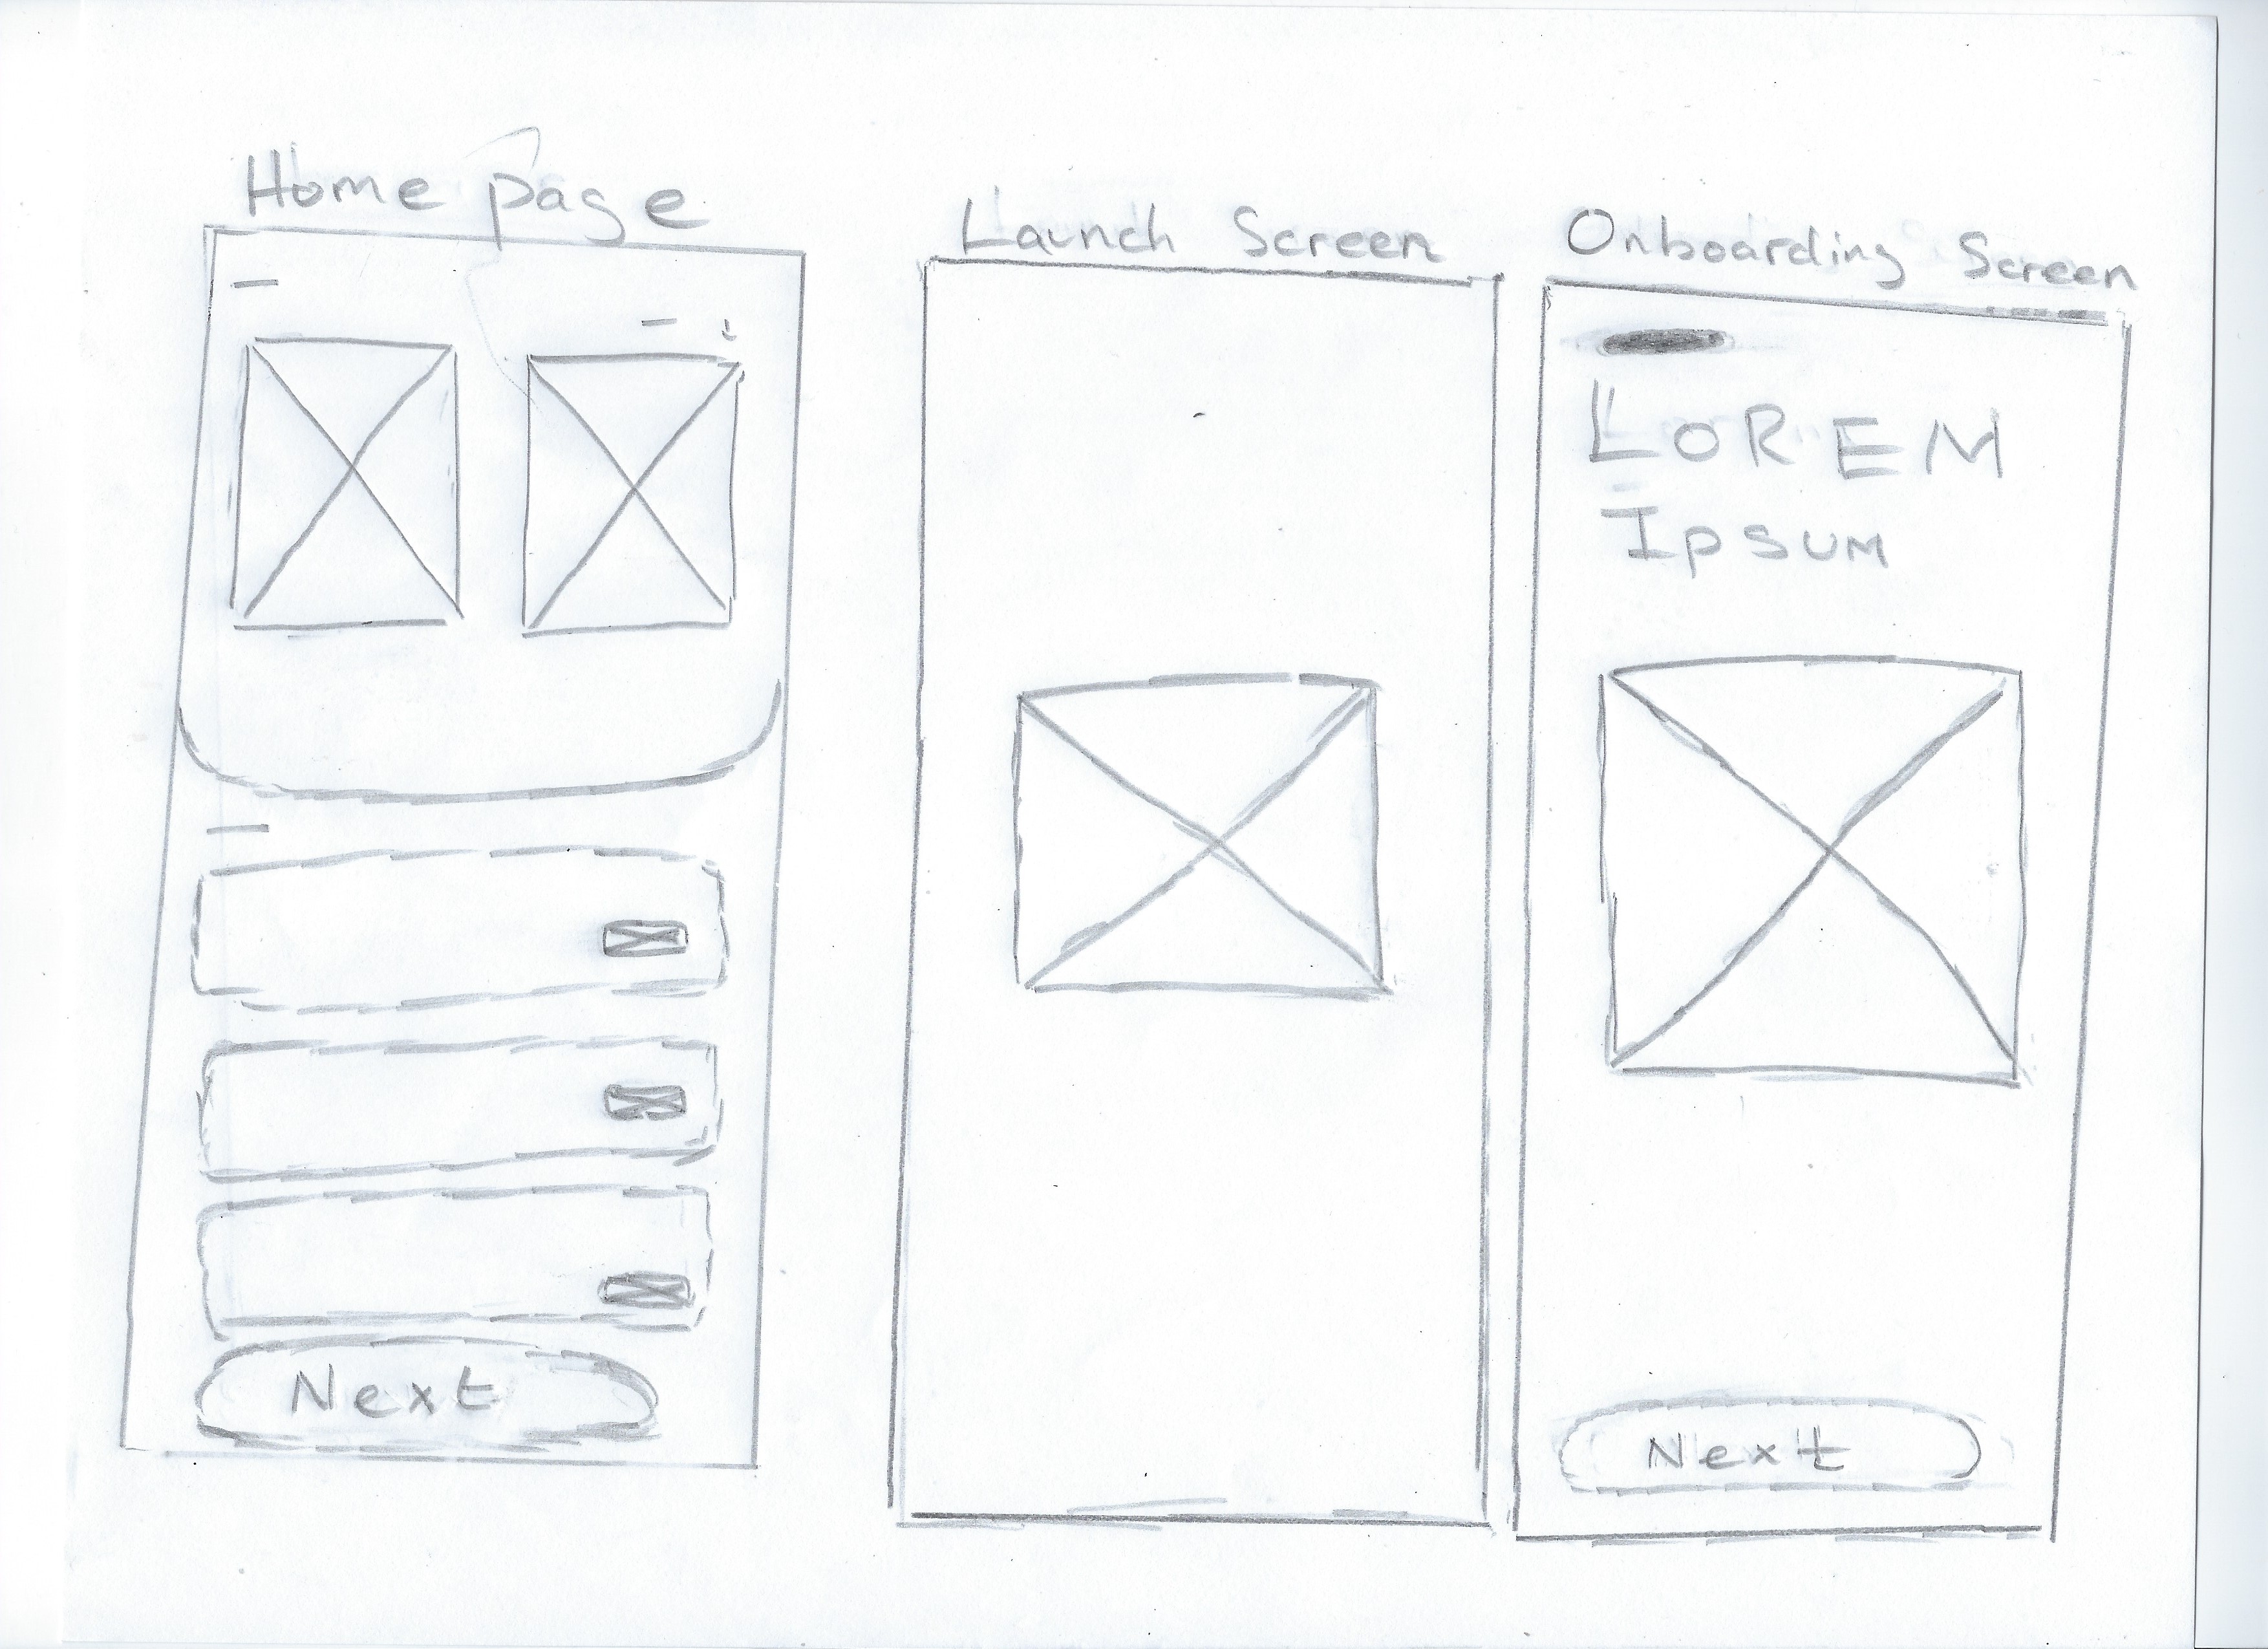 Home page
Next
Launch Screen
Onboarding Screen
LOREM
IpsUM
Next